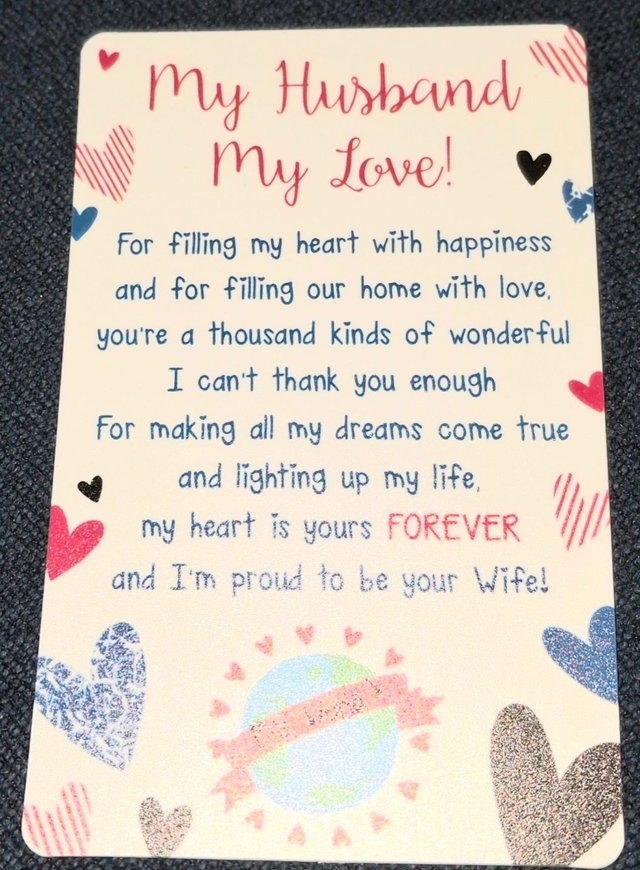 My Husband
My Love!
For filling my heart with happiness
and for filling our home with love,
you're a thousand kinds of wonderful
I can't thank you enough
For making all my dreams come true
and lighting up my life,
my heart is yours FOREVER
and I'm proud to be your Wife!